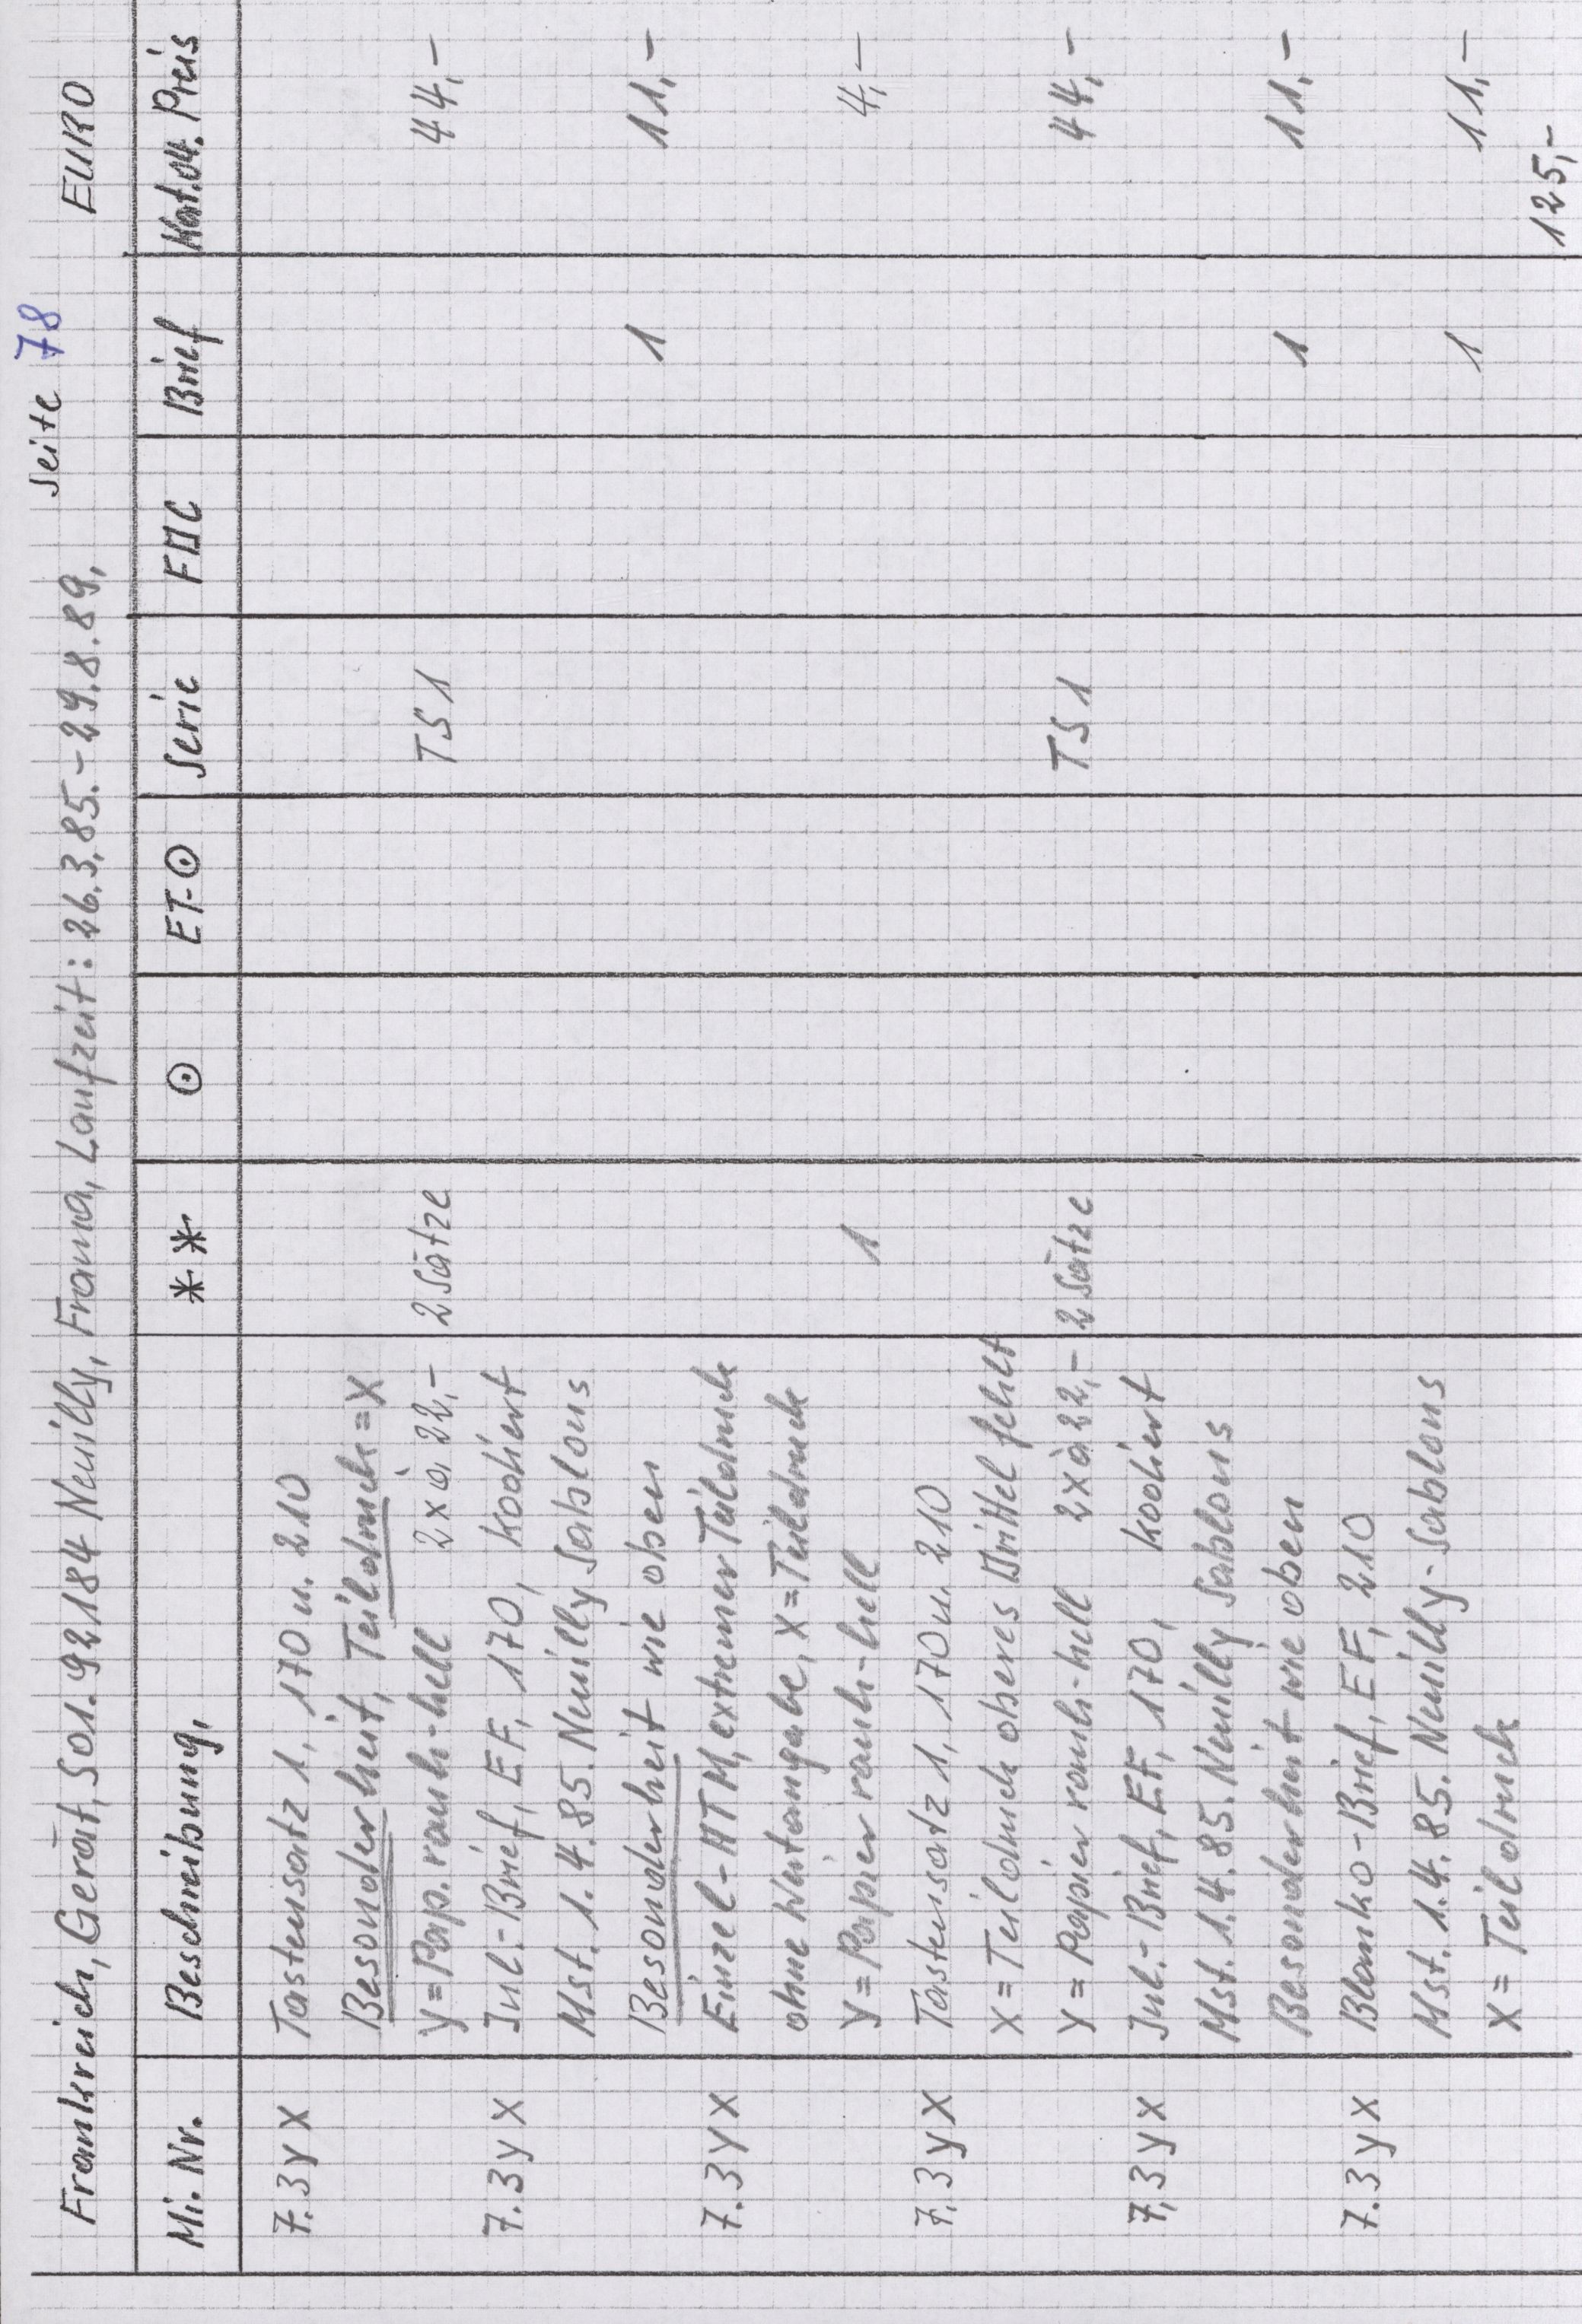 Seite 78
Frankreich, Gerät, 501.92184 Neuilly, Frama, Laufzeit: 26.3.85.-29.8.89, EURO
Mi. Nr. Beschreibung, ** ⊙ ET-⊙ Serie FDC Brief Kat.04. Preis
7.3 y X Tastensatz 1, 170 u. 210
Besonderheit, Teildruck = X
y = Pap. rauh-hell 2 x à 22,- 2 Sätze TS 1 44,-
7.3 y X Inl.-Brief, EF, 170, kodiert
Mst. 1.4.85. Neuilly Sablons
Besonderheit wie oben 1 11,-
7.3 y X Einzel-ATM, extremer Teildruck
ohne Wertangabe, X = Teildruck
y = Papier rauh-hell 1 4,-
7.3 y X Tastensatz 1, 170 u. 210
X = Teildruck oberes Drittel fehlt
y = Papier rauh-hell 2 x à 22,- 2 Sätze TS 1 44,-
7.3 y X Inl.-Brief, EF, 170, kodiert
Mst. 1.4.85. Neuilly Sablons
Besonderheit wie oben 1 11,-
7.3 y X Blanko-Brief, EF, 210
Mst. 1.4.85. Neuilly-Sablons
X = Teildruck 1 11,-
125,-